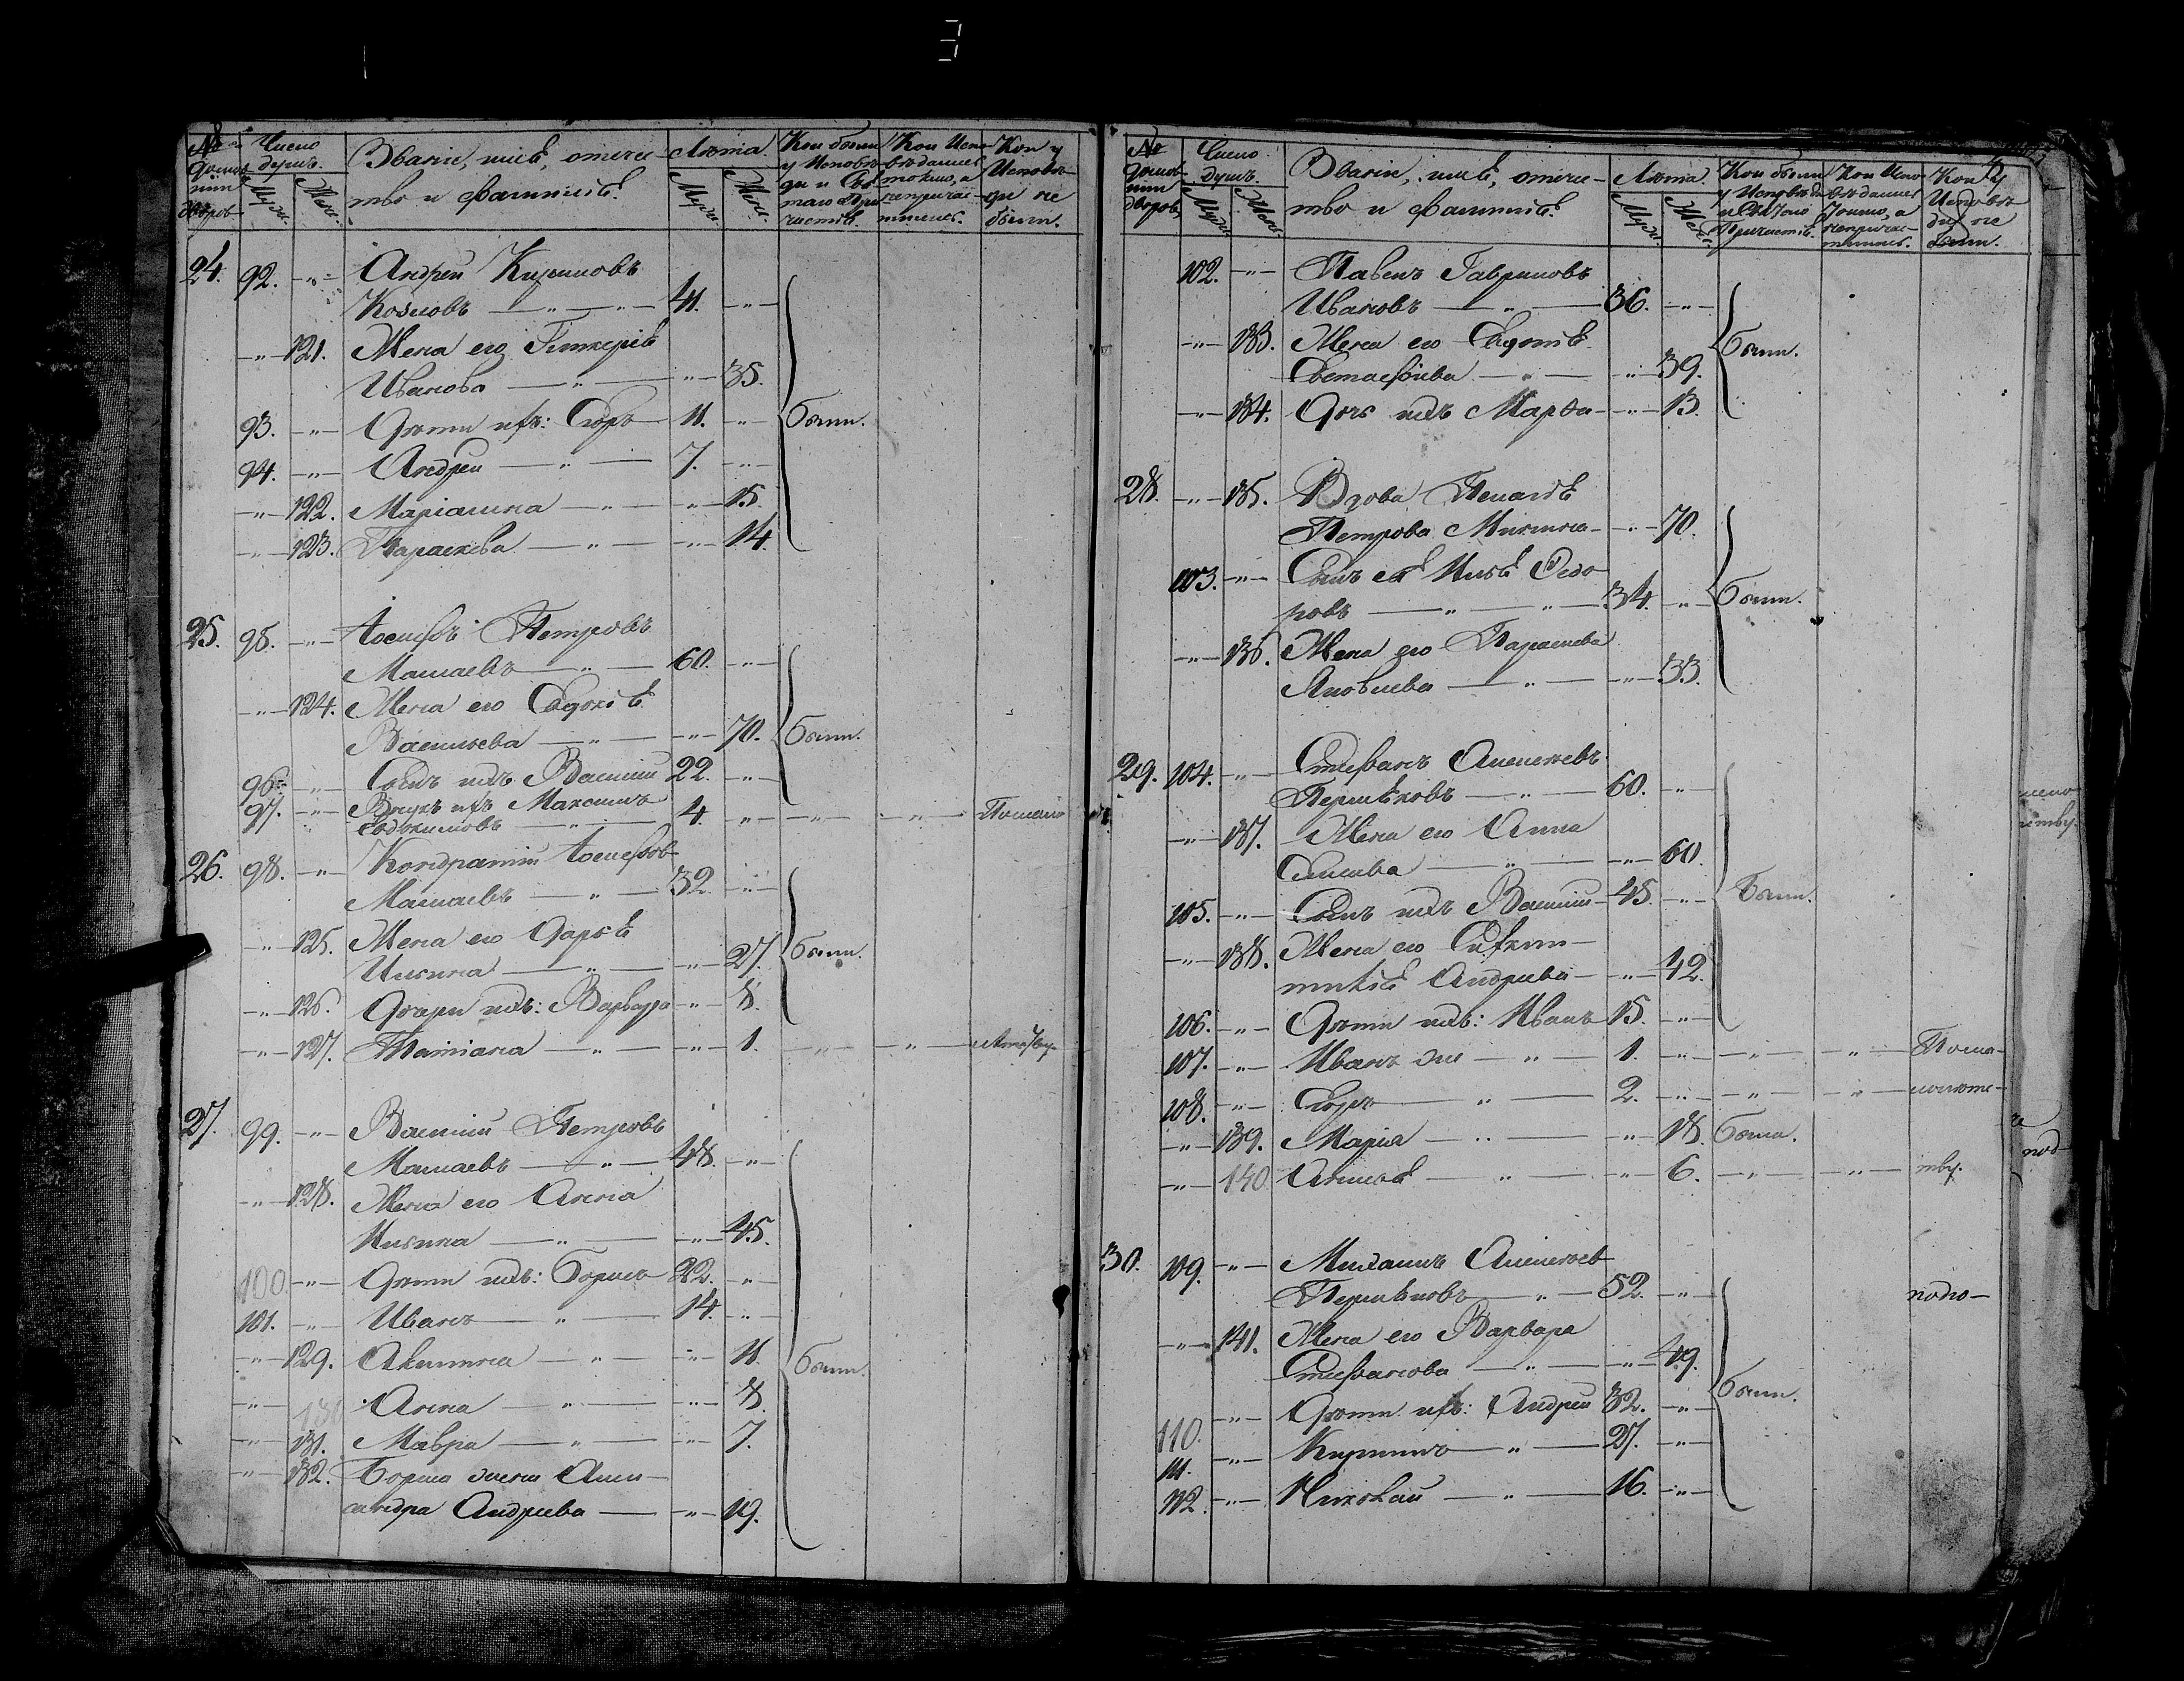 № домов
или
дворов
Число
душъ.
Муж.
Жен.
Званіе, имѣ, отече-
тво и фамиліѣ.
Лѣта.
Муж.
Жен.
Кои были
у Исповѣ-
ди и Свѣ
таго При
частіѣ.
Кои Испо-
вѣдались
токмо, а
непричас-
тились.
Кои у
Исповѣ-
ди не
были.
24. 92. -„- Андрей Кириловъ
Козловъ -„- 41. -„-
-„- 121. Жена его Гликеріѣ
Иванова -„- -„- 35.
93. -„- Дѣти ихъ: Сидръ 11. -„- Были.
94. -„- Андрей -„- 7. -„-
-„- 122. Маріамна -„- -„- 15.
-„- 123. Параскева -„- -„- 14.
25. 95. -„- Іосифъ Петровъ
Машаевъ -„- 60. -„-
-„- 124. Жена его Евдокіѣ
Васильева -„- -„- 70. Были.
96. -„- Сынъ ихъ Василий 22. -„-
97. -„- Внукъ ихъ Максимъ
Евдокимовъ -„- 4. -„- -„- -„- Помало
26. 98. -„- Кондратий Іосифов
Машаевъ -„- 32. -„-
-„- 125. Жена его Дарьѣ
Ильина -„- -„- 27. Были.
-„- 126. Дочери ихъ: Варвара -„- 8.
-„- 127. Татіана -„- -„- 1. -„- -„- лѣтству.
27. 99. -„- Василий Петровъ
Машаевъ -„- 48. -„-
-„- 128. Жена его Анна
Ильина -„- -„- 45.
100. -„- Дѣти ихъ: Борисъ 22. -„-
101. -„- Иванъ -„- 14. -„-
-„- 129. Акилина -„- -„- 11. Были.
-„- 130 Анна -„- -„- 8.
-„- 131. Мавра -„- -„- 7.
-„- 132. Бориса жена Алек-
сандра Андрѣева -„- 19.
№
домов
или
дворов
Число
душъ.
Муж.
Жен.
Званіе, имѣ, отече-
тво и фамиліѣ.
Лѣта.
Муж.
Жен.
Кои были
у Исповѣди
и Святаго
Причастіѣ.
Кои Испо
вѣдались
Токмо, а
непричас-
тились.
Кои у
Исповѣ-
ди не
были.
102. -„- Павелъ Гавриловъ
Ивановъ -„- 36. -„-
-„- 133. Жена его Евдокіѣ
Евстафіева -„- -„- 39. Были.
-„- 134. Дочь ихъ Марѳа -„- 13.
28. -„- 135. Вдова Пелагіѣ
Петрова -„- 70.
103. -„- Сынъ еѣ Ильѣ Ѳедо
ровъ -„- -„- 34. -„- Были.
-„- 136. Жена его Параскева
Яковлева -„- -„- 33.
29. 104. -„- Стефанъ Алексѣевъ
-„- 60. -„-
-„- 137. Жена его Анна
-„- -„- 60.
105. -„- Сынъ ихъ Василий 45. -„- Были.
-„- 138. Жена его
Андрѣева -„- 42.
106. -„- Дѣти ихъ: Иванъ 15. -„-
107. -„- Иванъ же -„- 1. -„- -„- -„- Пома-
108. -„- Сидръ -„- 2. -„- -„- -„- лолѣтс-
-„- 139. Мариѧ -„- -„- 18. Была.
-„- 140 -„- -„- 6. -„- -„- тву.
30. 109. -„- Михаилъ Алексѣев
-„- 52. -„-
-„- 141. Жена его Варвара
Стефанова -„- -„- 49.
110. -„- Дѣти ихъ: Андрей 32. -„- Были.
111. -„- Кирилъ -„- 27. -„-
112. -„- Николай -„- 16. -„-